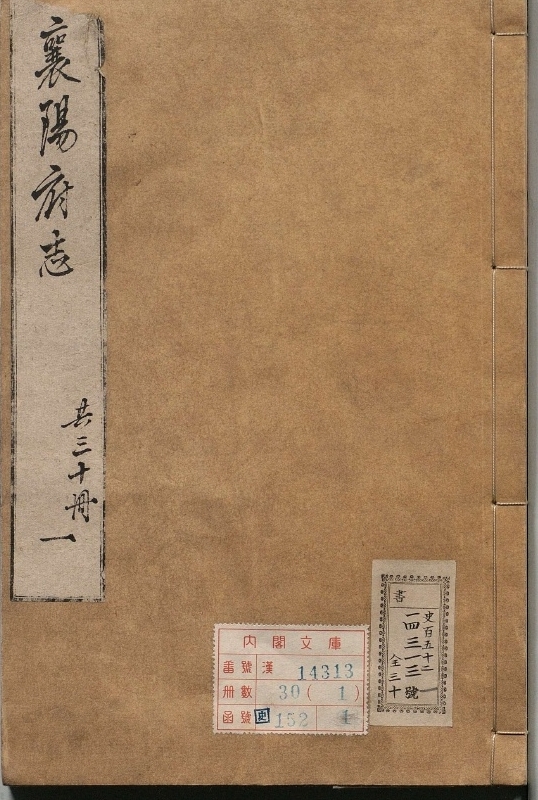 襄陽府志
共三十冊 一
內閣文庫
番號 漢 14313
冊數 30(1)
函號 史 152 1
書
史百五十二
一四三一三號
全三十